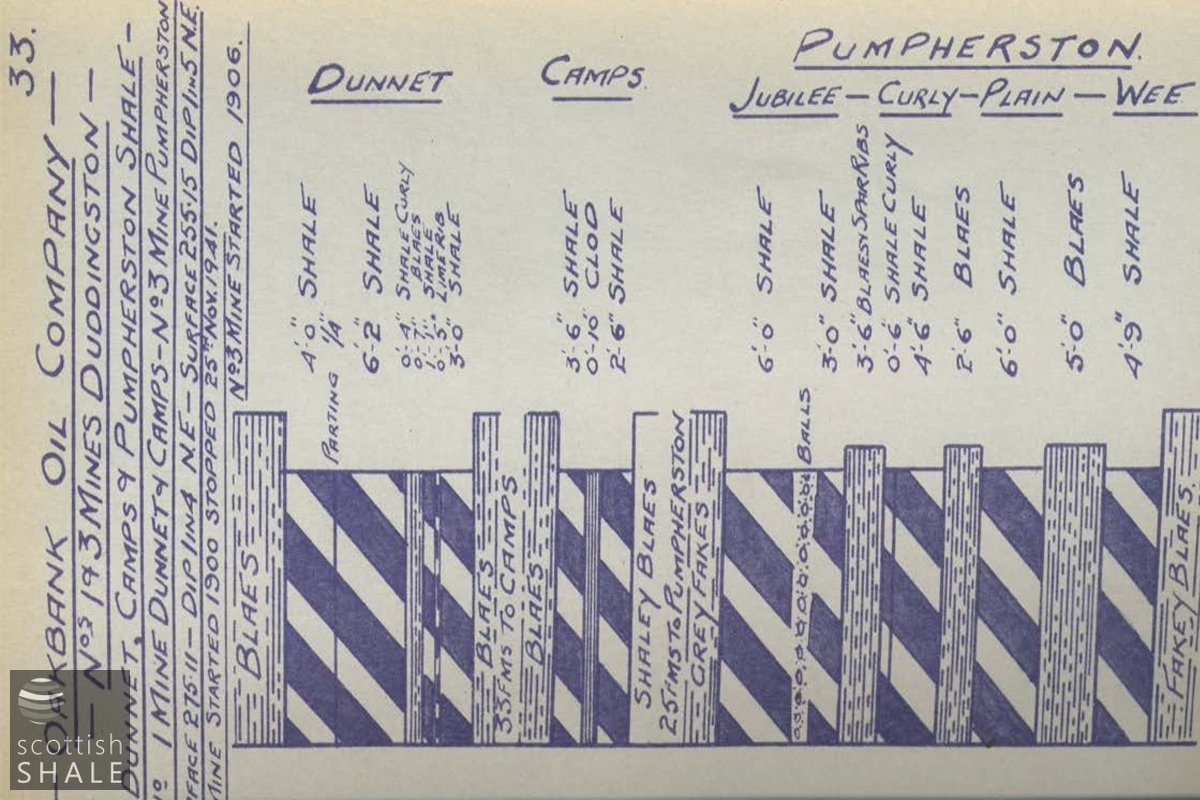 33.
— OAKBANK OIL COMPANY —
— Nos 1 & 3 MINES DUDDINGSTON —
DUNNET, CAMPS & PUMPHERSTON SHALE –
No 1 MINE DUNNET & CAMPS – No 3 MINE PUMPHERSTON
FACE 275·11 – DIP 1 IN 4 N.E – SURFACE 255·15 DIP 1 IN 5 N.E.
MINE STARTED 1900 STOPPED 25th NOV. 1941.
No 3 MINE STARTED 1906.
DUNNET
CAMPS
PUMPHERSTON.
JUBILEE – CURLY – PLAIN – WEE
4'·0" SHALE
PARTING 1/4"
6'·2" SHALE
0'·4" SHALE CURLY
0'·7" BLAES
1'·1" SHALE
0'·5" LIMERIB
3'·0" SHALE
3'·6" SHALE
0'·10" CLOD
2'·6" SHALE
6'·0" SHALE
BALLS
3'·0" SHALE
3'·6" BLAES & SPAR RIBS
0'·6" SHALE CURLY
4'·6" SHALE
2'·6" BLAES
6'·0" SHALE
5'·0" BLAES
4'·9" SHALE
BLAES
BLAES
35 FMS TO CAMPS
BLAES
SHALEY BLAES
25 FMS TO PUMPHERSTON
GREY FAKES
FAKEY BLAES.
scottish
SHALE